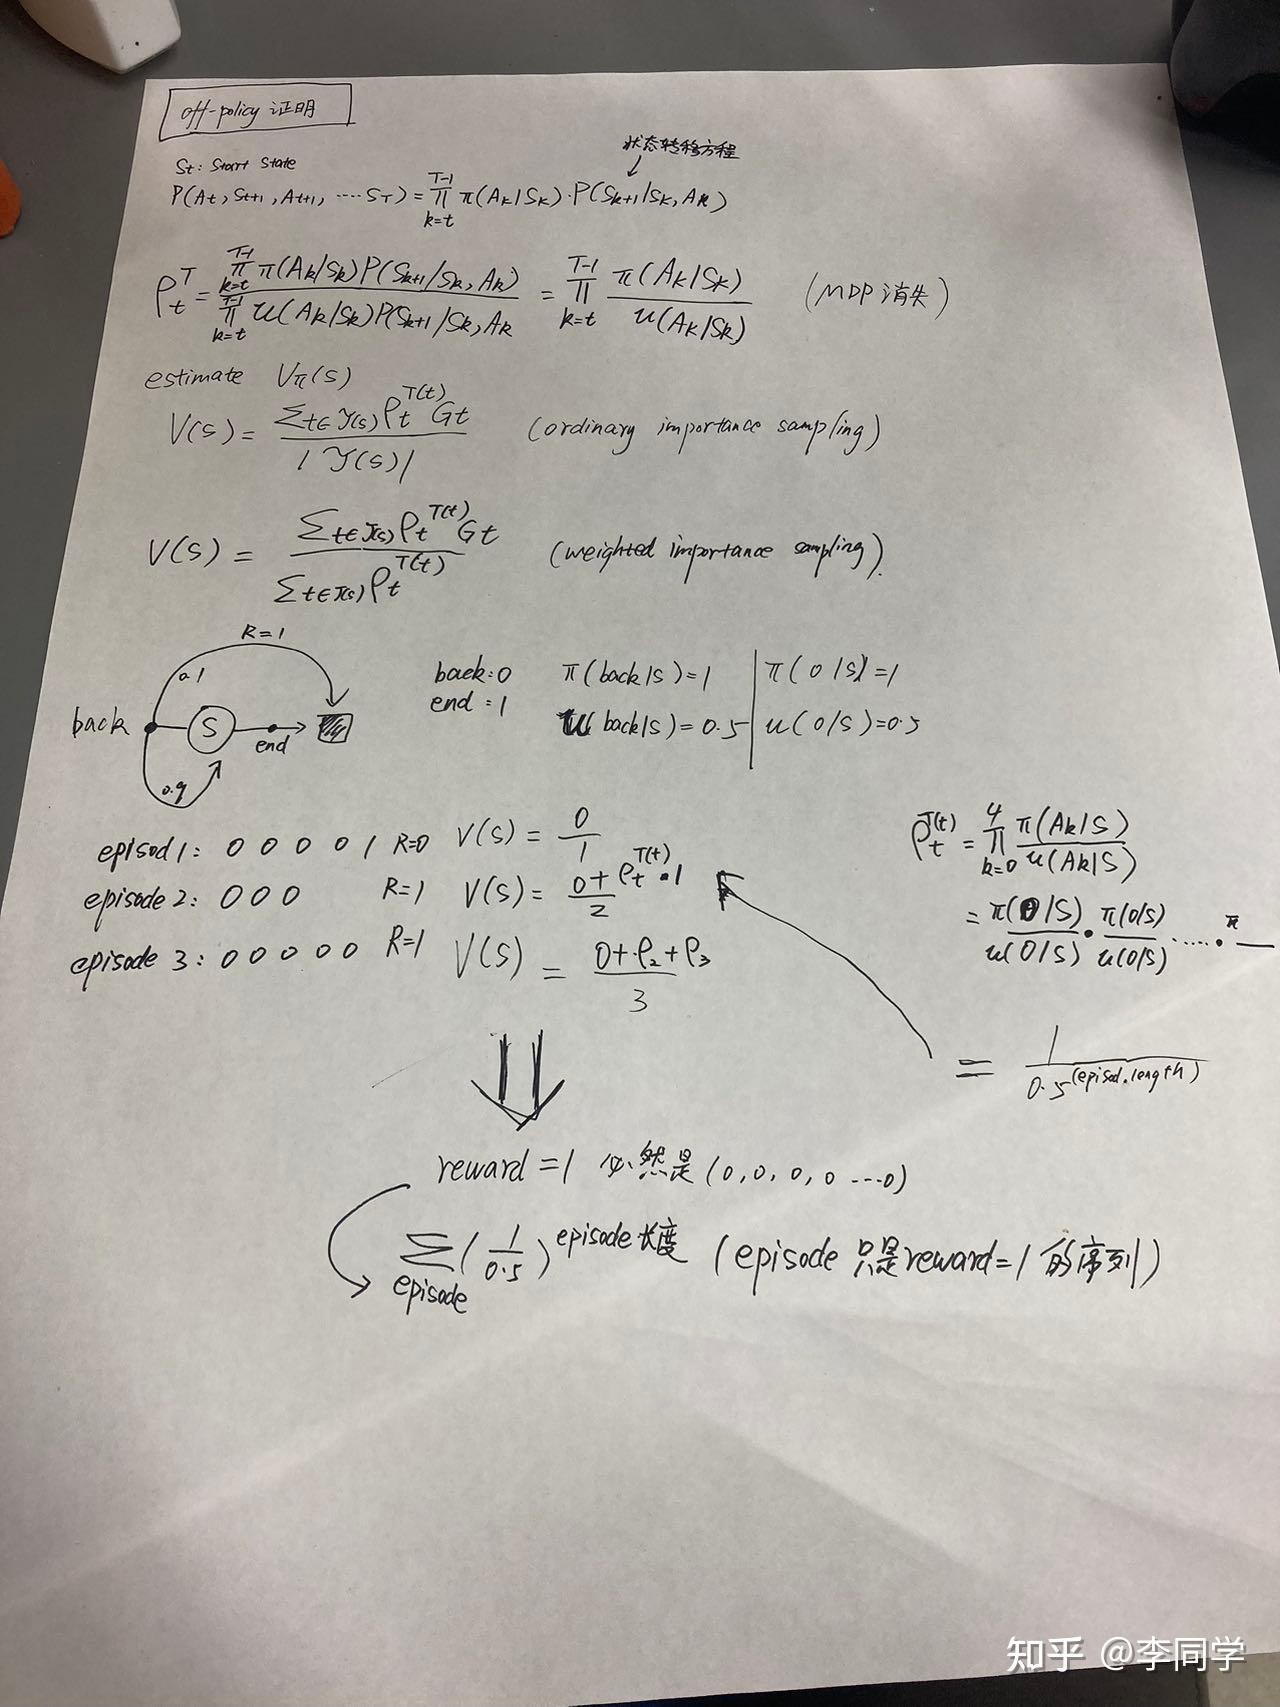 off-policy 证明
St: Start State
状态转移方程
P(At, St+1, At+1, ····ST) = ∏_{k=t}^{T-1} π(Ak|Sk)·P(Sk+1|Sk, Ak)
ρ_t^T = ∏_{k=t}^{T-1} π(Ak|Sk)P(Sk+1|Sk, Ak) / ∏_{k=t}^{T-1} u(Ak|Sk)P(Sk+1|Sk, Ak = ∏_{k=t}^{T-1} π(Ak|Sk) / u(Ak|Sk) (MDP 消失)
estimate Vπ(s)
V(s) = Σ_{t∈𝒯(s)} ρ_t^{T(t)} Gt / |𝒯(s)| (ordinary importance sampling)
V(s) = Σ_{t∈𝒯(s)} ρ_t^{T(t)} Gt / Σ_{t∈𝒯(s)} ρ_t^{T(t)} (weighted importance sampling).
R=1
0.1
back
S
end
0.9
back:0 π(back|s)=1 | π(0|s)=1
end:1 u(back|s)=0.5 | u(0|s)=0.5
episod1: 0 0 0 0 1 R=0 V(s) = 0/1
episode 2: 0 0 0 R=1 V(s) = (0+ρ_t^{T(t)}·1)/2
episode 3: 0 0 0 0 0 R=1 V(s) = (0+ρ2+ρ3)/3
ρ_t^{T(t)} = ∏_{k=0}^{4} π(Ak|S) / u(Ak|S)
= π(0|S)/u(0|S) · π(0|S)/u(0|S) ······ π
= 1 / 0.5^(episod.length)
reward=1 必然是 (0, 0, 0, 0 ···0)
Σ_{episode} (1/0.5)^{episode长度} (episode 只是reward=1 的序列)
知乎 @李同学